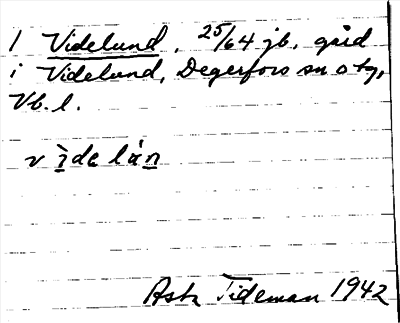 1 Videlund, 25/64 jb, gård
i Videlund, Degerfors sn o tg,
Vb. l.
v ìde lán
Ask Tideman 1942